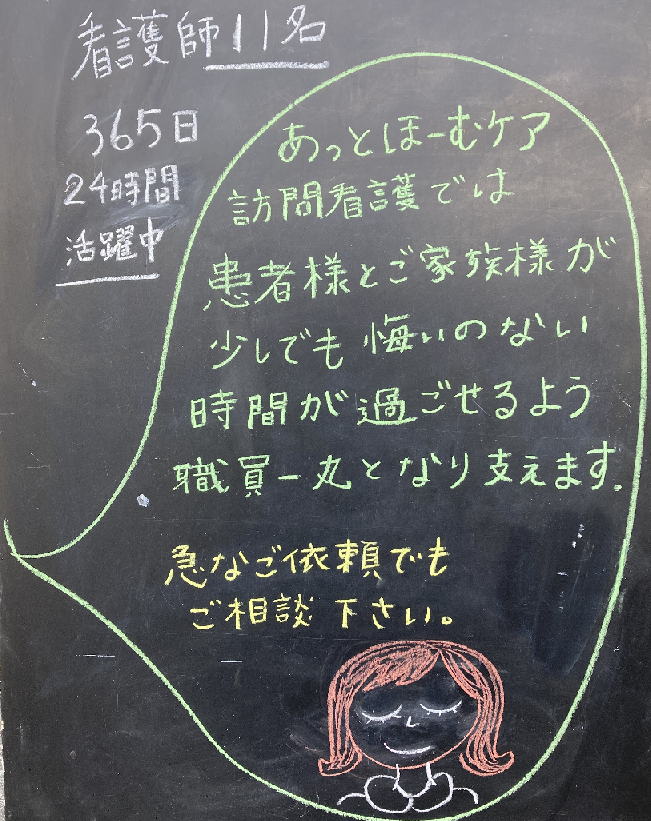 看護師11名
365日
24時間
活躍中
あっとほーむケア
訪問看護では
患者様とご家族様が
少しでも悔いのない
時間が過ごせるよう
職員一丸となり支えます.
急なご依頼でも
ご相談下さい。